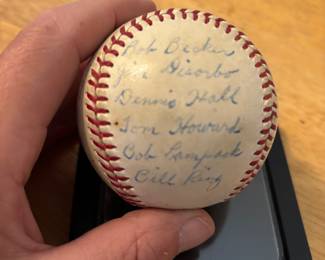 Bob Becker
Jim Disorbo
Dennis Hall
Tom Howard
Bob Lampack
Bill King